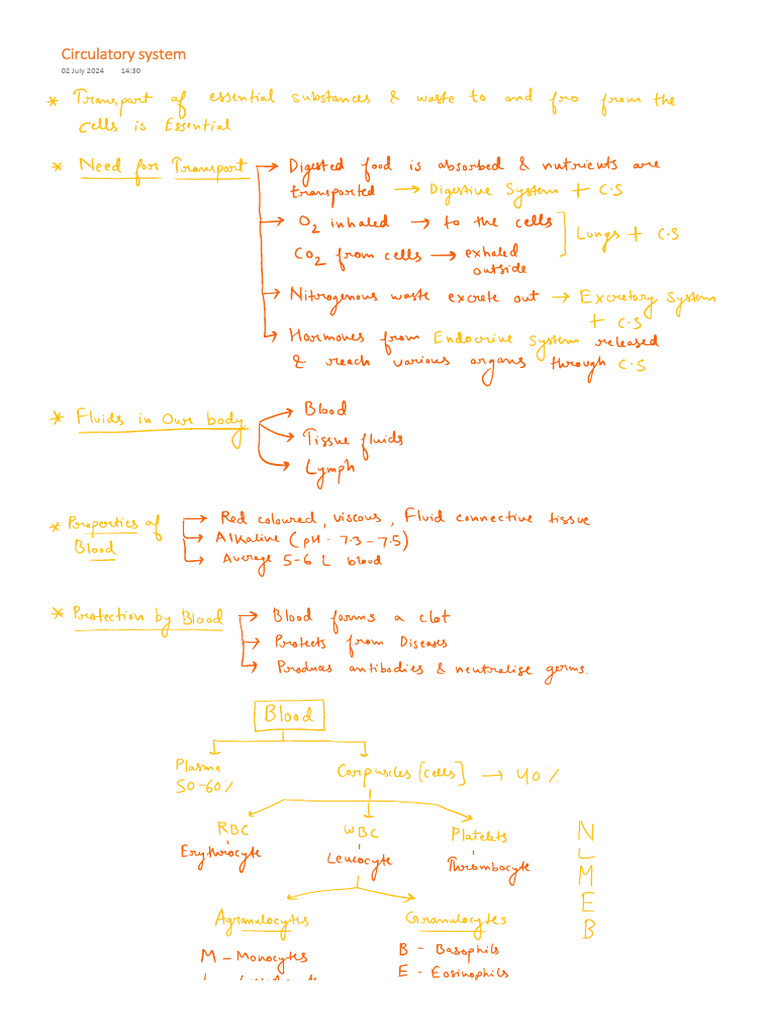 Circulatory system
02 July 2024 14:30
* Transport of essential substances & waste to and fro from the
cells is Essential
* Need for Transport → Digested food is absorbed & nutrients are
transported → Digestive System + C.S
→ O2 inhaled → to the cells
CO2 from cells → exhaled
outside
Lungs + C.S
→ Nitrogenous waste excrete out → Excretory System
+ C.S
→ Hormones from Endocrine system released
& reach various organs through C.S
* Fluids in Our body → Blood
→ Tissue fluids
→ Lymph
* Properties of
Blood
→ Red coloured, viscous, Fluid connective tissue
→ Alkaline (pH - 7.3-7.5)
→ Average 5-6 L blood
* Protection by Blood → Blood forms a clot
→ Protects from Diseases
→ Produces antibodies & neutralise germs.
Blood
Plasma
50-60%
Corpuscles [cells] → 40%
RBC WBC Platelets
Erythrocyte Leucocyte Thrombocyte
N
L
M
E
B
Agranulocytes Granulocytes
M - Monocytes B - Basophils
E - Eosinophils